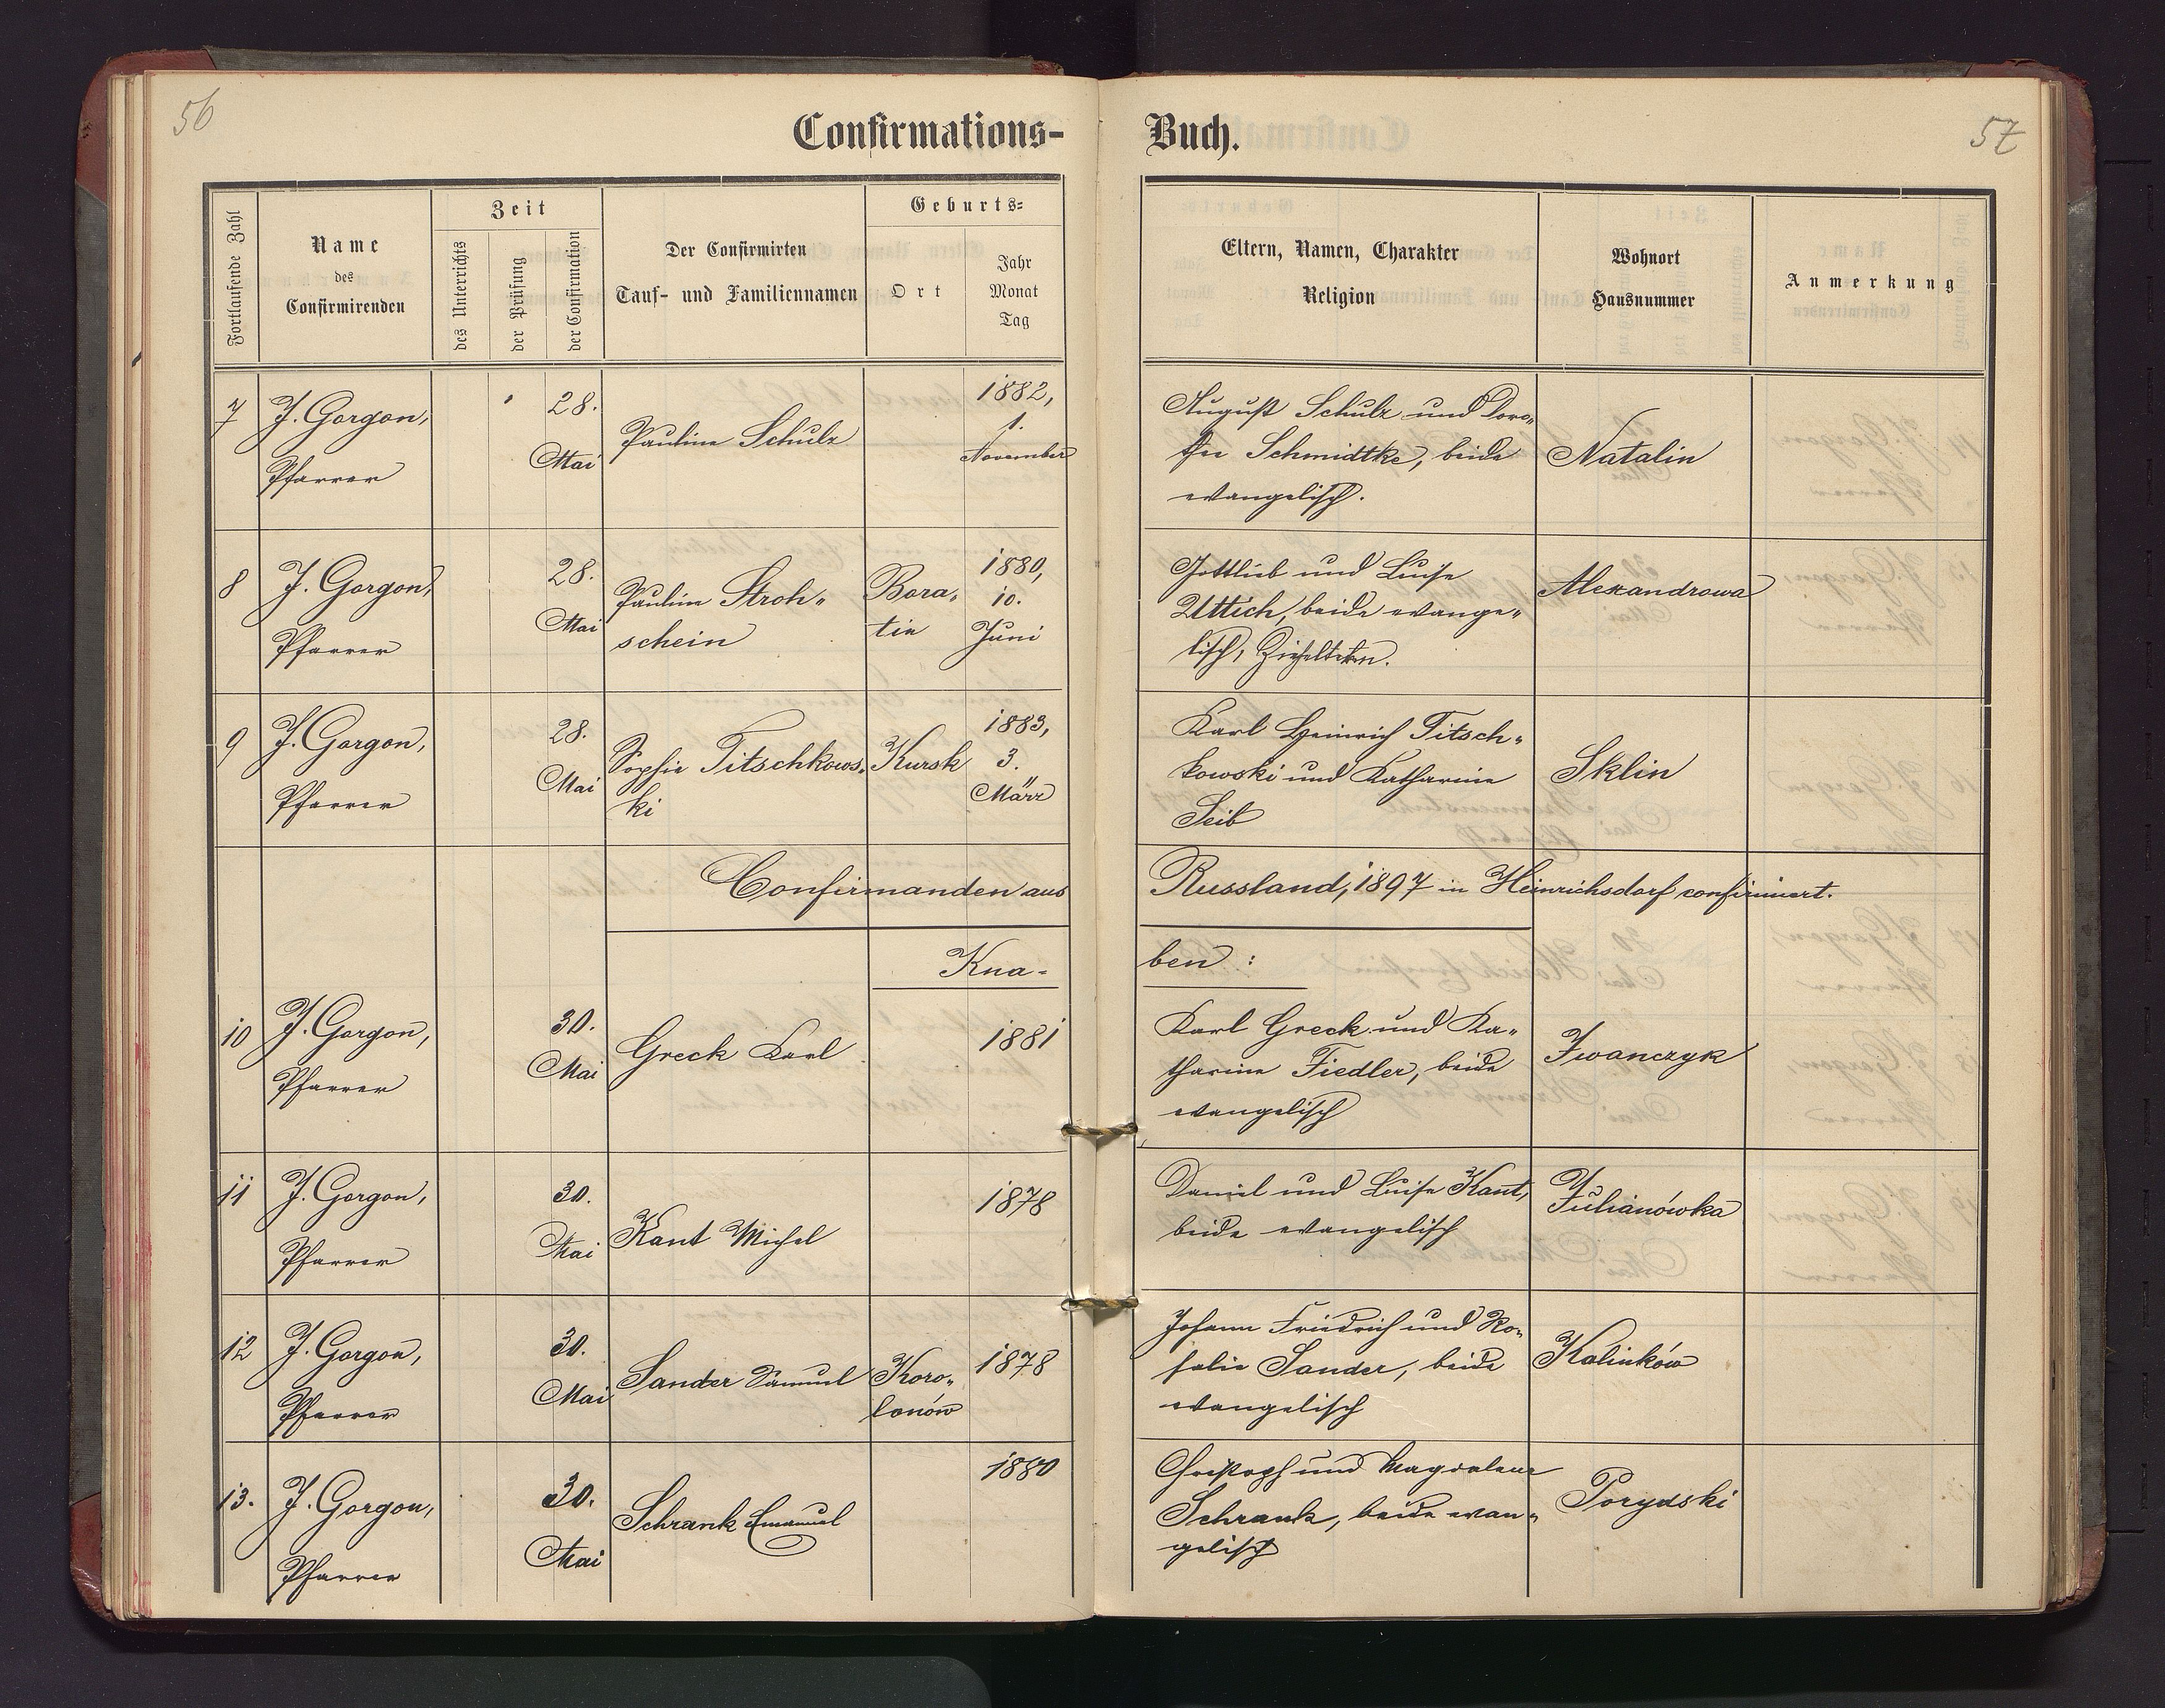 56
57
Confirmations-
Buch.
Fortlaufende Zahl
Name
des
Confirmirenden
Zeit
des Unterrichts
der Prüfung
der Confirmation
Der Confirmirten
Tauf- und Familiennamen
Geburts-
Ort
Jahr
Monat
Tag
Eltern, Namen, Charakter
Religion
Wohnort
Hausnummer
Anmerkung
7
J. Gorgon,
Pfarrer
28.
Mai
Pauline Schulz
1882,
1.
November
August Schulz und Doro„
thee Schmidtke, beide
evangelisch.
Natalin
8
J. Gorgon,
Pfarrer
28.
Mai
Pauline Stroh„
schein
Bora„
tin
1880,
10.
Juni
Gottlieb und Luise
Uttich, beide evange„
lisch, Zieheltern.
Alexandrowa
9
J. Gorgon,
Pfarrer
28.
Mai
Sophie Titschkows„
ki
Kursk
1883,
3.
März
Karl Heinrich Titsch„
kowski und Katharine
Seib
Sklin
Confirmanden aus
Russland, 1897 in Heinrichsdorf confirmiert.
Kna-
ben :
10
J. Gorgon,
Pfarrer
30.
Mai
Greck Karl
1881
Karl Greck und Ka„
tharine Fiedler, beide
evangelisch
Iwanczyk
11
J. Gorgon,
Pfarrer
30.
Mai
Kant Michel
1878
Daniel und Luise Kant,
beide evangelisch
Julianówka
12
J. Gorgon,
Pfarrer
30.
Mai
Sander Samuel
Koro„
lonów
1878
Johann Friedrich und Ro„
salie Sander, beide
evangelisch
Kalinków
13.
J. Gorgon,
Pfarrer
30.
Mai
Schrank Emanuel
1880
Christoph und Magdalene
Schrank, beide evan„
gelisch
Porydski